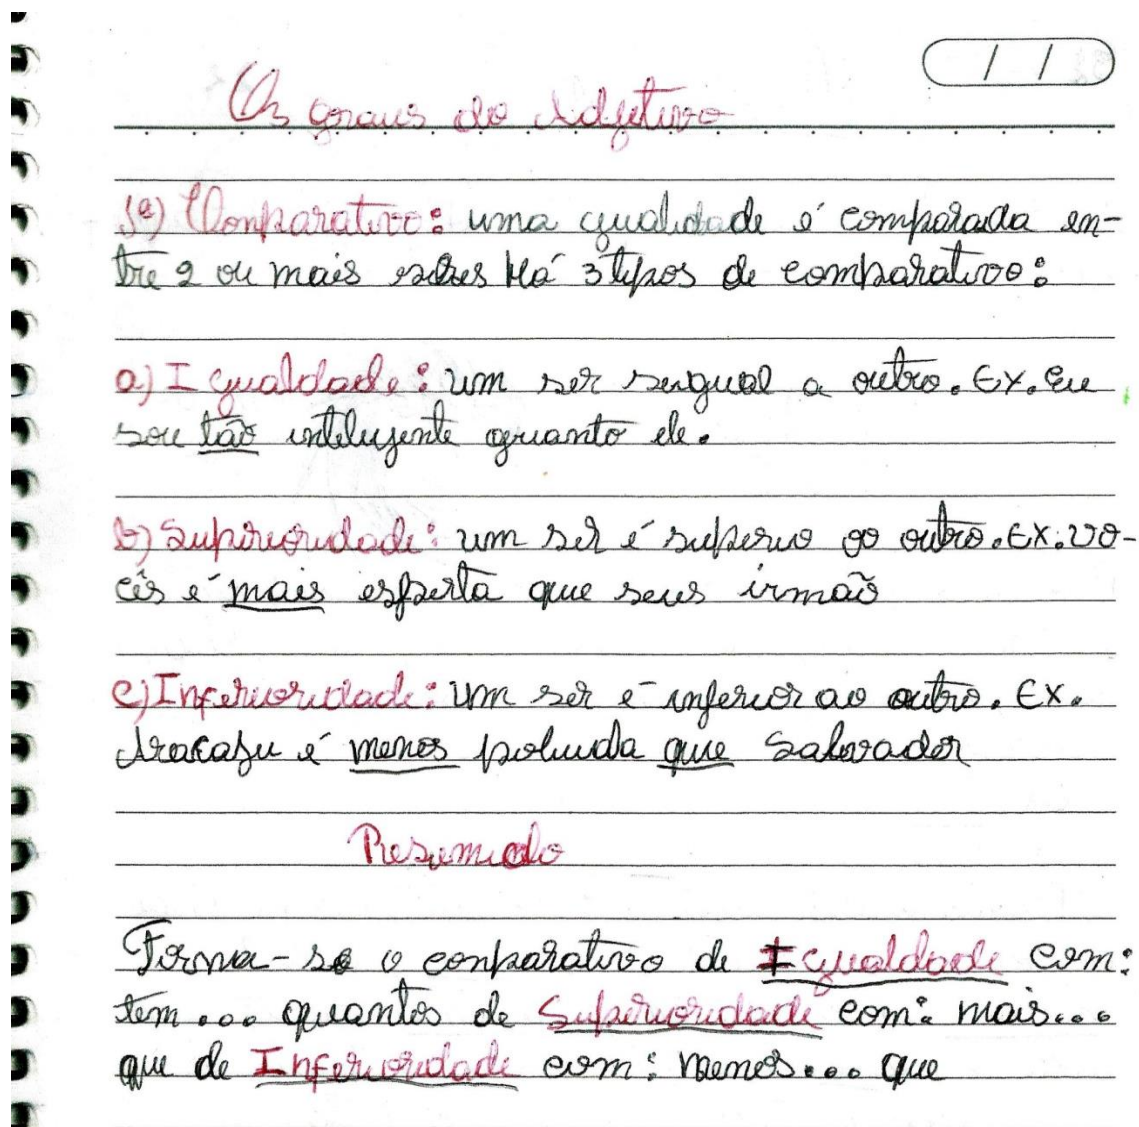 Os graus do Adjetivo
1º) Conparativo: uma qualidade é comparada en-
tre 2 ou mais Há 3 tipos de comparativo:
a) Igualdade: um ser a outro. Ex. Eu
sou tão intelujente quanto ele.
b) Superioridade: um ser é ao outro. Ex. vo-
cês é mais esperta que seus irmão
c) Inferioridade: um ser é inferior ao outro. Ex.
Aracaju é menos poluida que Salvador
Resumido
Forma-se o conparativo de Igualdade com:
tem... quantos de Superioridade com: mais...
que de Inferioridade com: menos... que